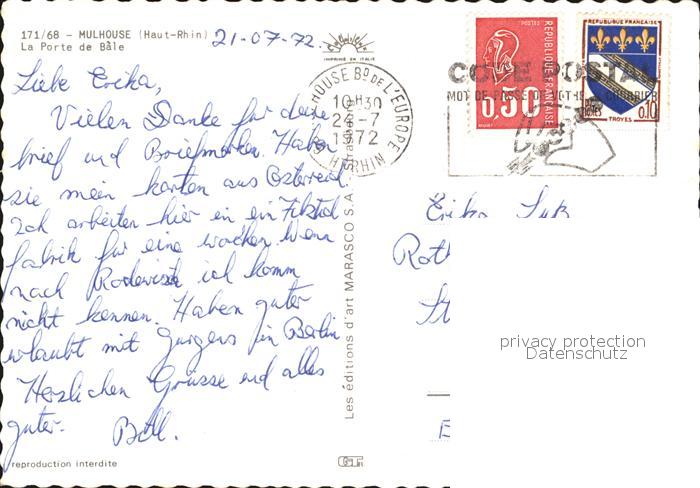 171/68 - MULHOUSE (Haut-Rhin)
La Porte de Bâle
21-07-72.
IMPRIMÉ EN ITALIE
Liebe Erika,
Vielen Danke für deine
brief und Briefmarken. Haben
sie mein karten aus Österreich.
Ich arbeiten hier in ein
fabrik für eine wochen. Wenn
nach Rodewisch ich komm
nicht kennen. Haben guter
urlaubt mit Jurgens in Berlin
Herzlichen Grüsse und alles
guter. Bill.
reproduction interdite
Les éditions d'art MARASCO S.A.
HOUSE Bd DE L'EUROPE
10H30
24-7
1972
HT-RHIN
CODE POSTAL
MOT DE PASSE DE VOTRE COURRIER
REPUBLIQUE FRANÇAISE
0,50
REPUBLIQUE FRANÇAISE
0,10
POSTES
TROYES
Erika
Rot
St
E
privacy protection
Datenschutz